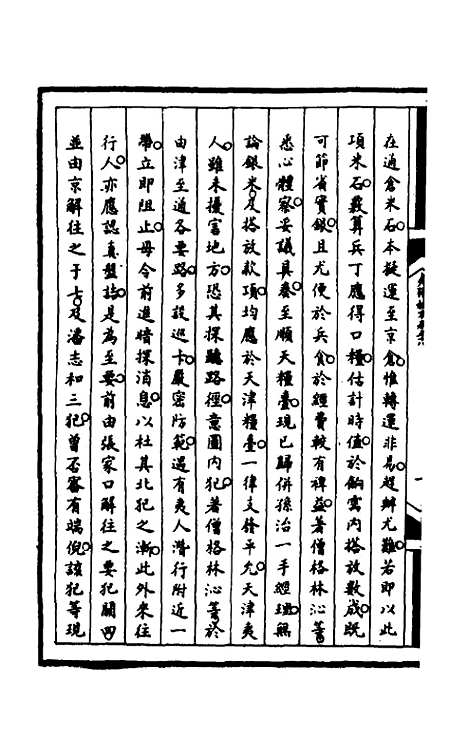 在通倉米石本擬運至京倉惟轉運非易趲辦尤難若即以此
項米石覈算兵丁應得口糧估計時值於餉需內搭放數成既
可節省實銀且尤便於兵食於經費較有裨益著僧格林沁等
悉心體察妥議具奏至順天糧臺現已歸併孫治一手經理無
論銀米及搭放款項均應於天津糧臺一律支發平允天津夷
人雖未擾害地方恐其探聽路徑意圖內犯著僧格林沁等於
由津至通各要路多設巡卡嚴密防範遇有夷人潛行附近一
帶立即阻止毋令前進暗探消息以杜其北犯之漸此外來往
行人亦應認真盤詰是為至要前由張家口解往之要犯關四
並由京解往之于七及潘志和三犯曾否審有端倪該犯等現